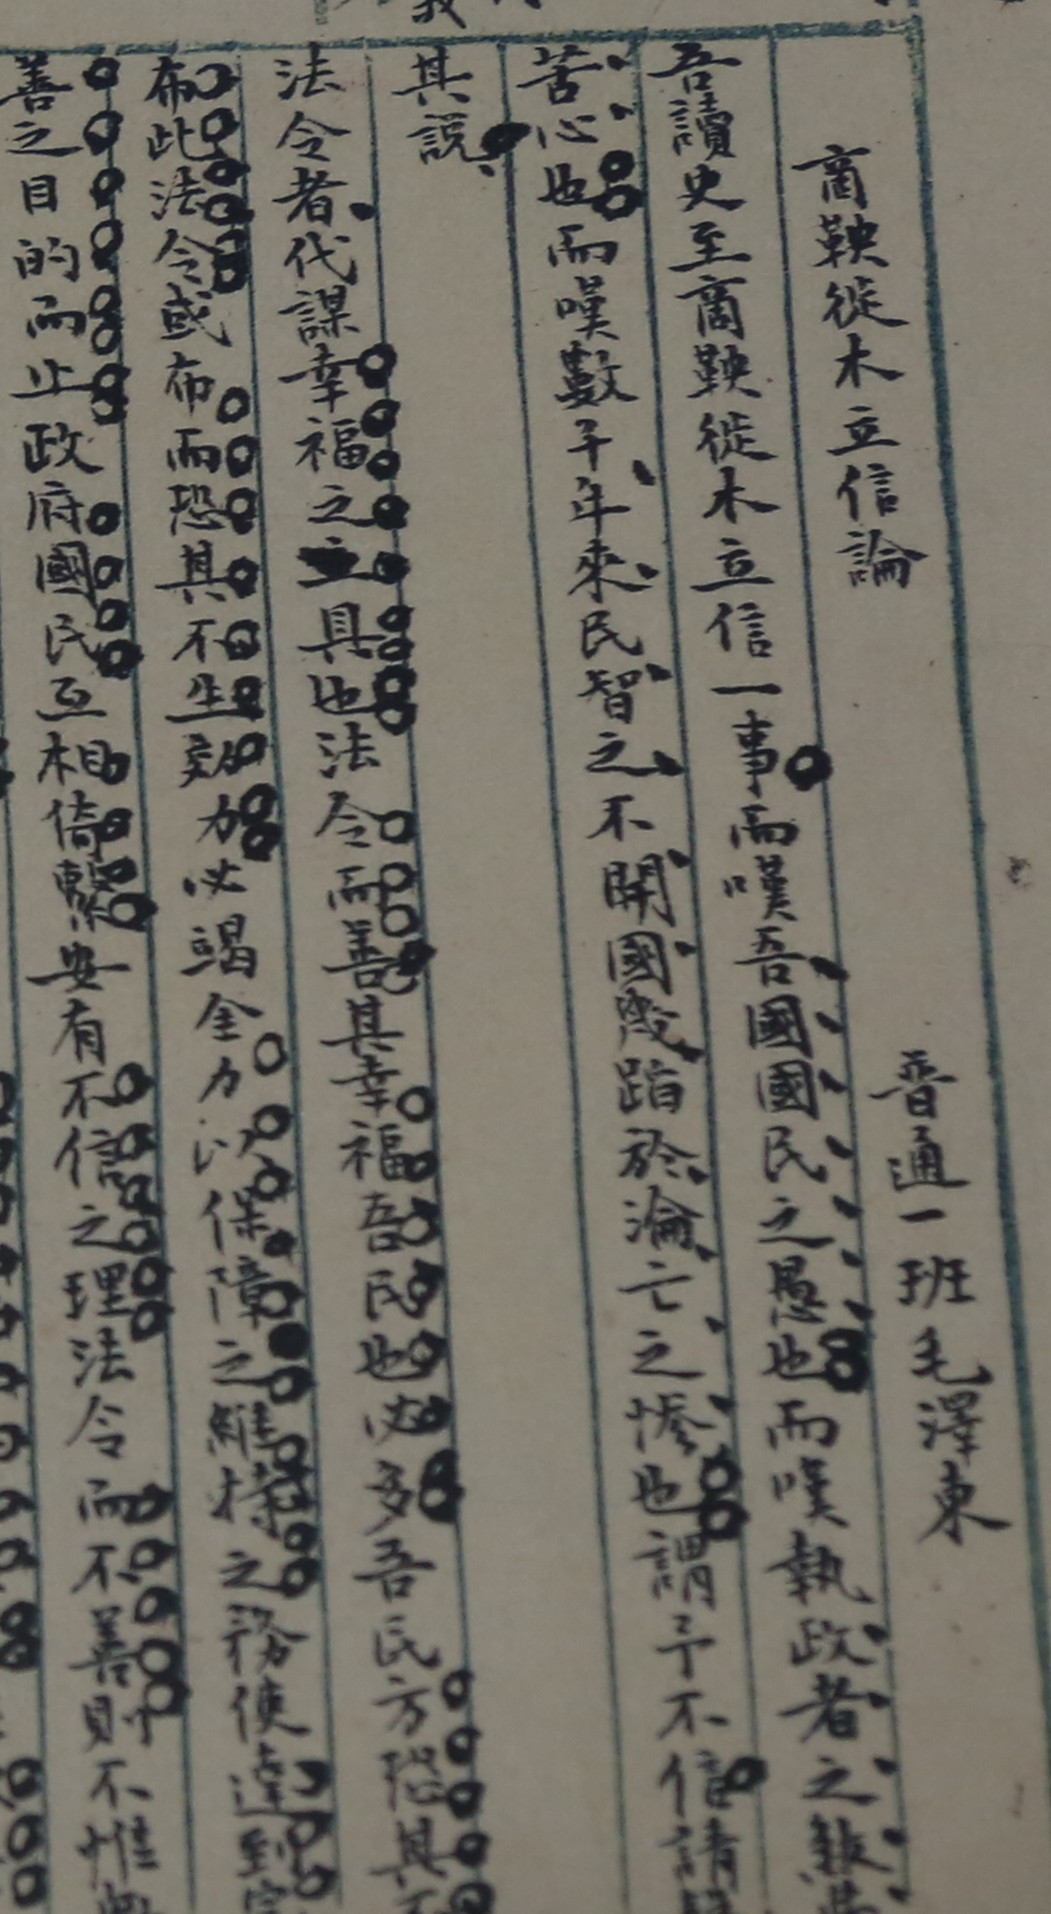 商鞅徙木立信論
普通一班毛澤東
吾讀史至商鞅徙木立信一事而嘆吾國國民之愚也而嘆執政者之煞費
苦心也而嘆數千年來民智之不開國幾蹈於淪亡之慘也謂予不信請
其說
法令者代謀幸福之具也法令而善其幸福吾民也必多吾民方恐其不
布此法令或布而恐其不生効力必竭全力以保障之維持之務使達到完
善之目的而止政府國民互相倚繫安有不信之理法令而不善則不惟